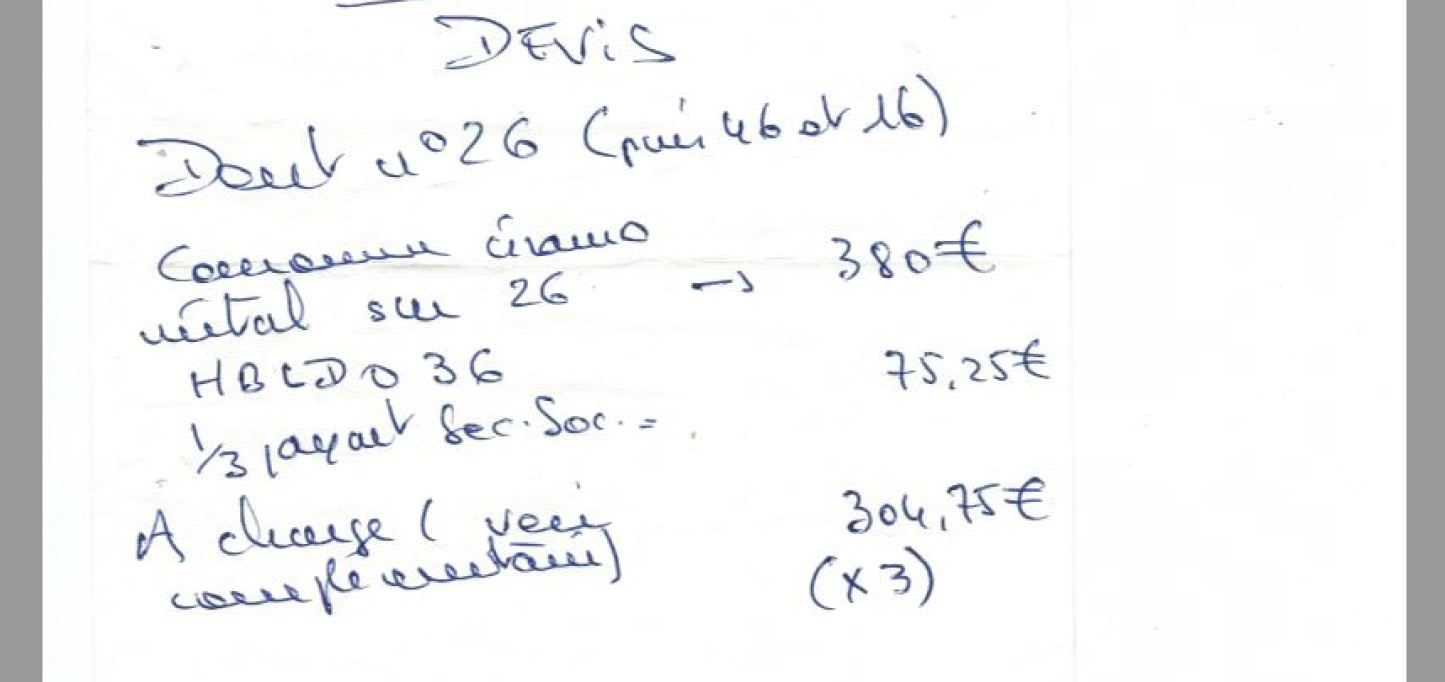 DEVIS
Dent n°26 (puis 46 et 16)
Couronne céramo
métal sur 26 → 380€
HBLDO36 75,25€
1/3 payant Sec. Soc. =
A charge ( voir 304,75€
complémentaire) (x3)